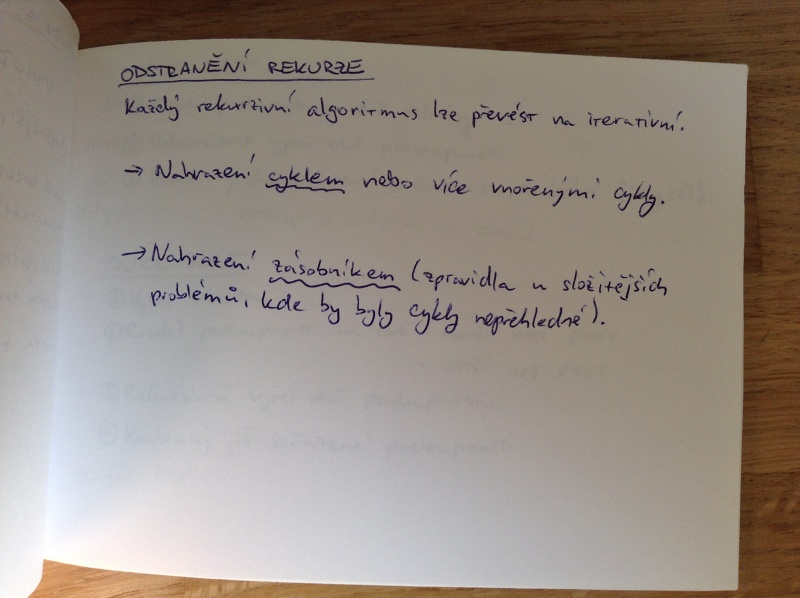 ODSTRANĚNÍ REKURZE
Každý rekurzivní algoritmus lze převést na iterativní.
→ Nahrazení cyklem nebo více vnořenými cykly.
→ Nahrazení zásobníkem (zpravidla u složitějších
problémů, kde by byly cykly nepřehledné).